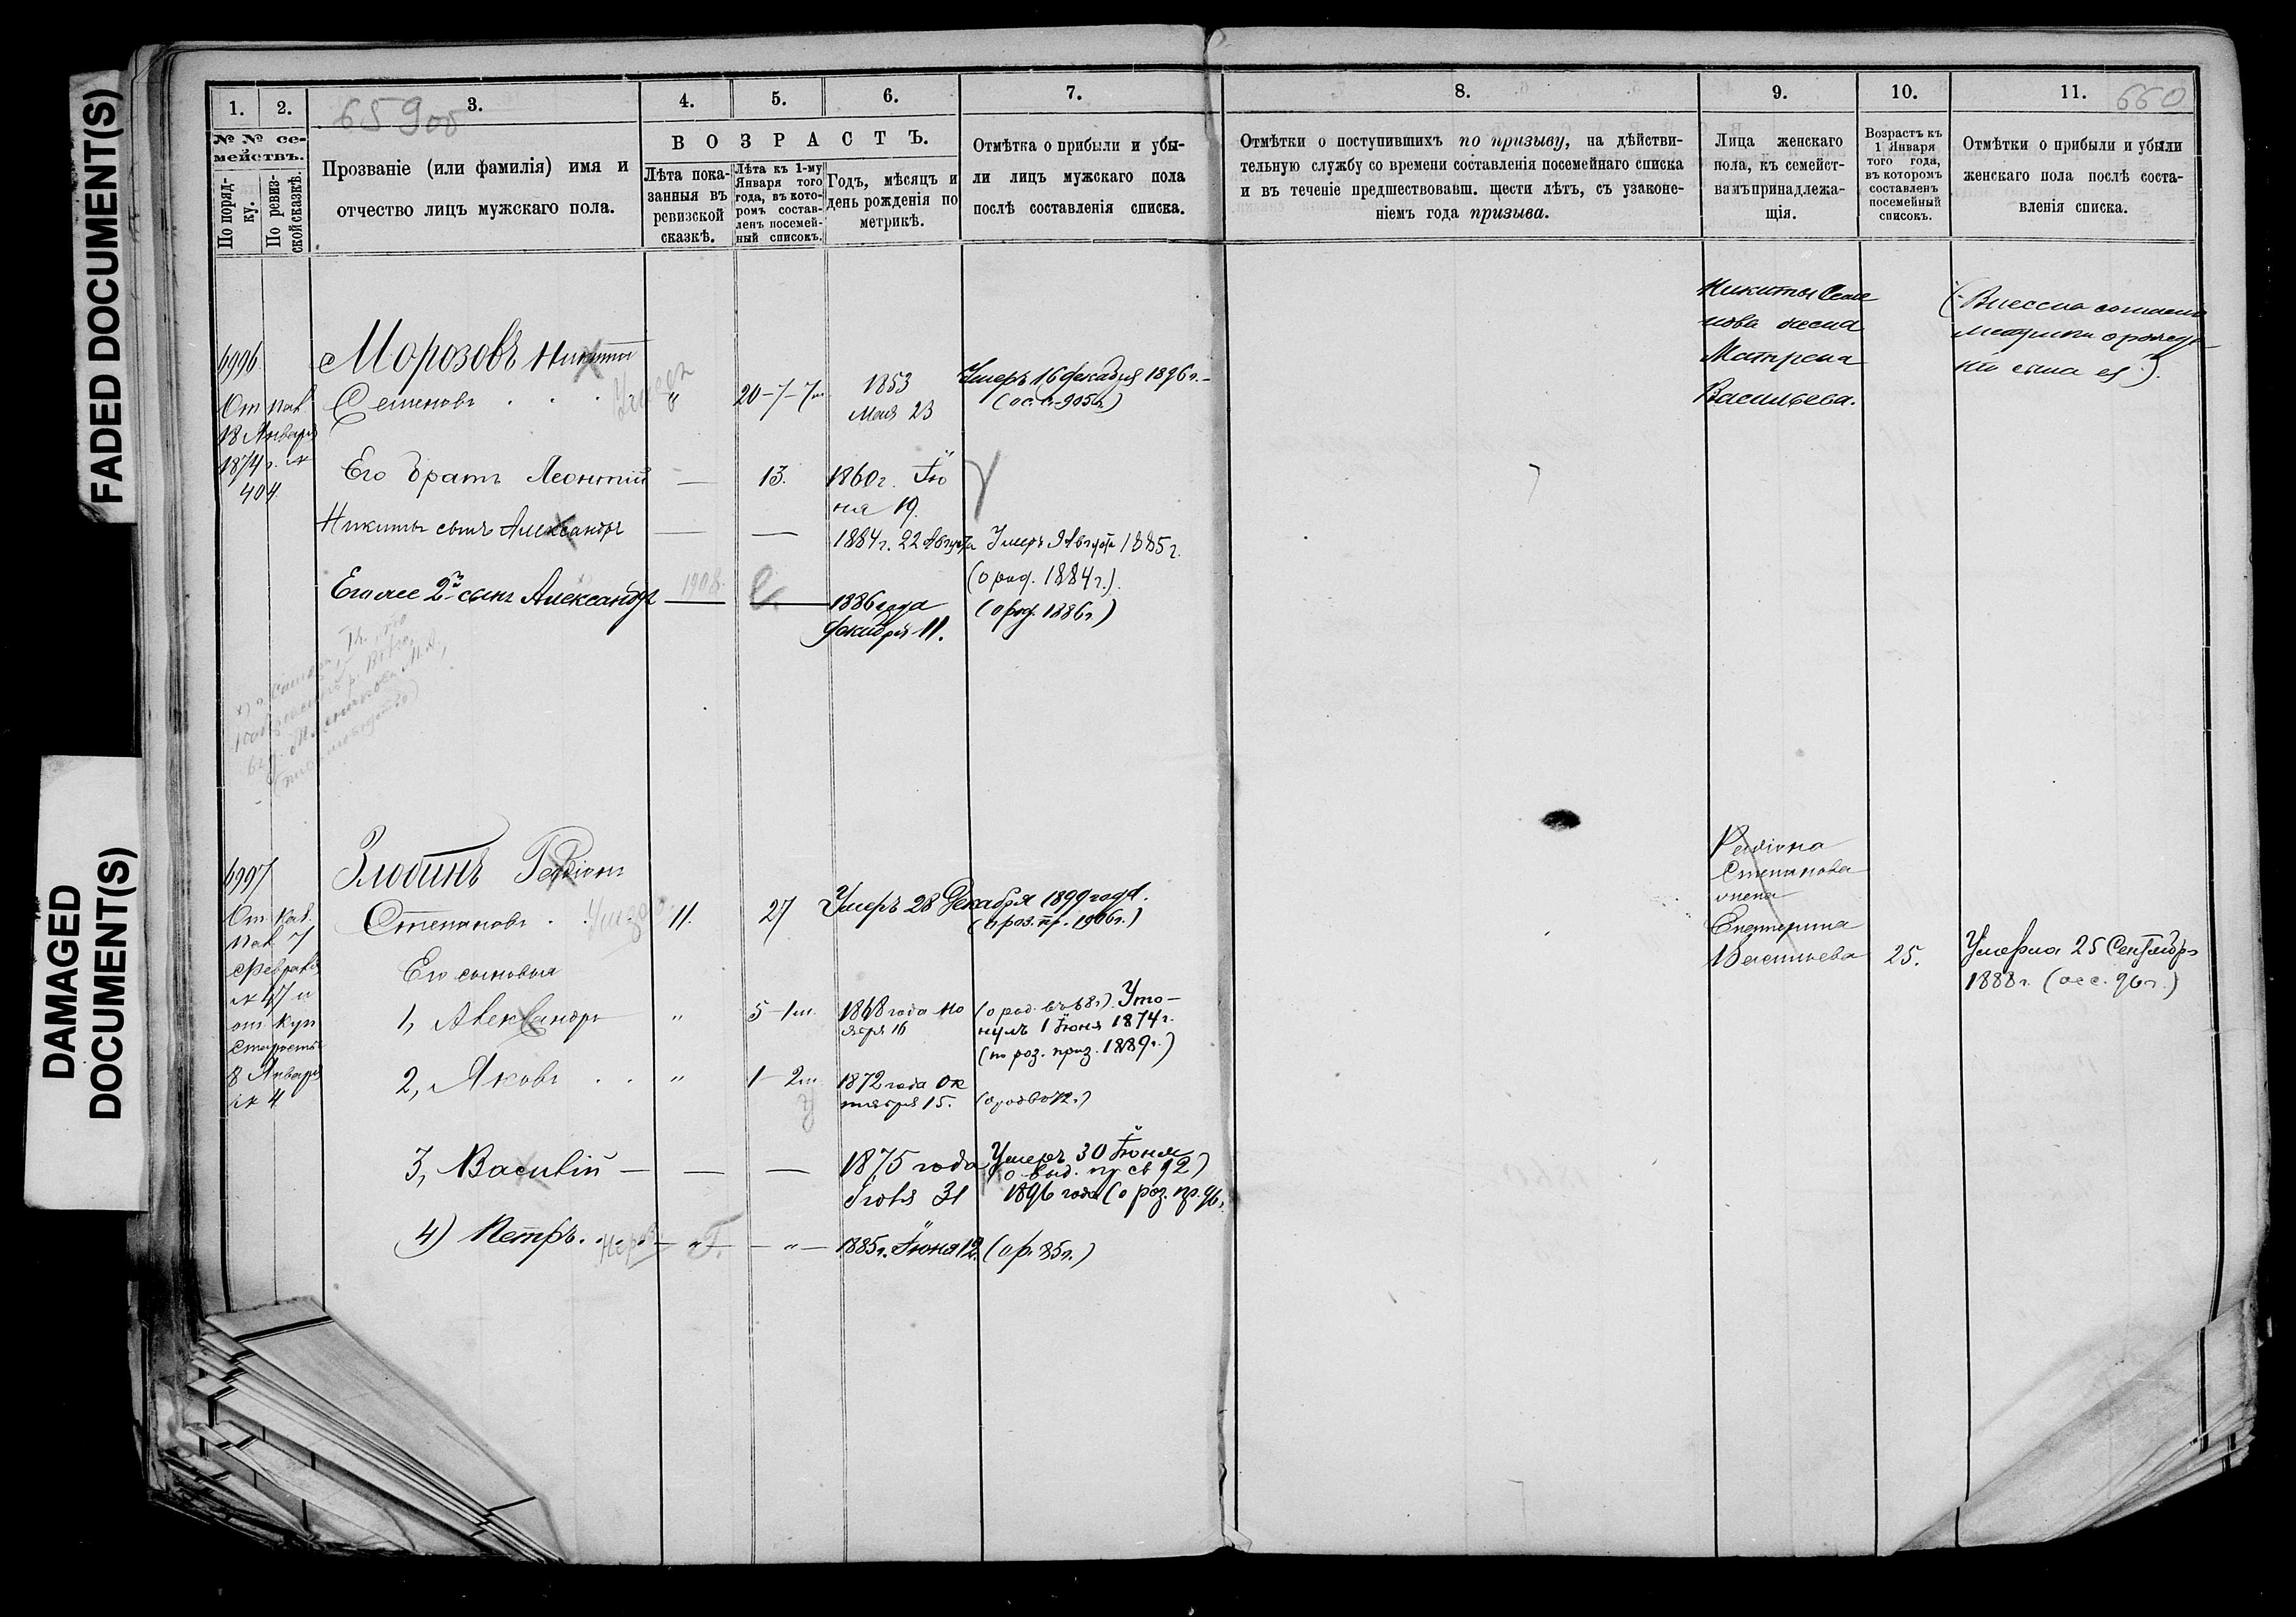 FADED DOCUMENT(S)
DAMAGED
DOCUMENT(S)
1.
2.
3.
4.
5.
6.
7.
8.
9.
10.
11.
65900
660
№ № се-
мействъ.
По поряд-
ку.
По ревиз-
ской сказкѣ.
Прозваніе (или фамилія) имя и
отчество лицъ мужскаго пола.
ВОЗРАСТЪ.
Лѣта пока-
занныя въ
ревизской
сказкѣ.
Лѣта къ 1-му
Января того
года, въ кото-
ромъ состав-
ленъ посемей-
ный списокъ.
Годъ, мѣсяцъ и
день рожденія по
метрикѣ.
Отмѣтка о прибыли и убы-
ли лицъ мужскаго пола
послѣ составленія списка.
Отмѣтки о поступившихъ по призыву, на дѣйстви-
тельную службу со времени составленія посемейнаго списка
и въ теченіе предшествовавш. щести лѣтъ, съ узаконе-
ніемъ года призыва.
Лица женскаго
пола, къ семейст-
вамъ принадлежа-
щія.
Возрастъ къ
1 Января
того года,
въ которомъ
составленъ
посемейный
списокъ.
Отмѣтки о прибыли и убыли
женскаго пола послѣ соста-
вленія списка.
6996
От пав.
18 Января
1874 г. №
404
Морозовъ Никита
Семеновъ . . .
"
20-7-7м
1853
Мая 23
Умеръ 16 декабря 1896 г.
Никиты Семе
нова жена
Матрена
Васильева.
(Внесена согласно
метрики о рожде-
ніи сына ея).
Его братъ Леонтій
—
13.
1860 г. Ію
ня 19.
Никиты сынъ Александръ
—
—
1884 г. 22 Августа
Умеръ 9 Августа 1885 г.
(о род. 1884 г.).
Его же 2й сынъ Александръ
1908.
1886 года
декабря 11.
(о род. 1886 г.)
6997
От каз.
пав 7
Февраля
№ 47 и
от куп
старосты
8 Января
№ 4
Злобинъ Родіонъ
Степановъ . .
11.
27
Умеръ 28 Декабря 1899 года.
(о роз. пр. 1906 г.)
Родіона
Степанова
жена
Екатерина
Васильева
25.
Умерла 25 Сентября
1888 г. (осс. 96 г.)
Его сыновья
1, Александръ
"
5-1м.
1868 года но
ября 16
(о род. въ 68 г) Уто-
нулъ 1 Іюня 1874 г.
(по роз. приз. 1889 г.)
2, Яковъ . .
"
1-2м
1872 года Ок
тября 15.
(о род въ 72 г)
3, Василій —
—
—
1875 года
Іюля 31
Умеръ 30 Іюня
1896 года (о роз. пр. 96 г.
4) Петръ. . .
— " —
— " —
1885 г. Іюня 12.
(о р. 85 г.)